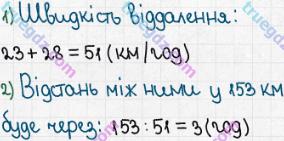 1) Швидкість віддалення:
23 + 28 = 51 (км/год)
2) Відстань між ними у 153 км
буде через: 153 : 51 = 3 (год)